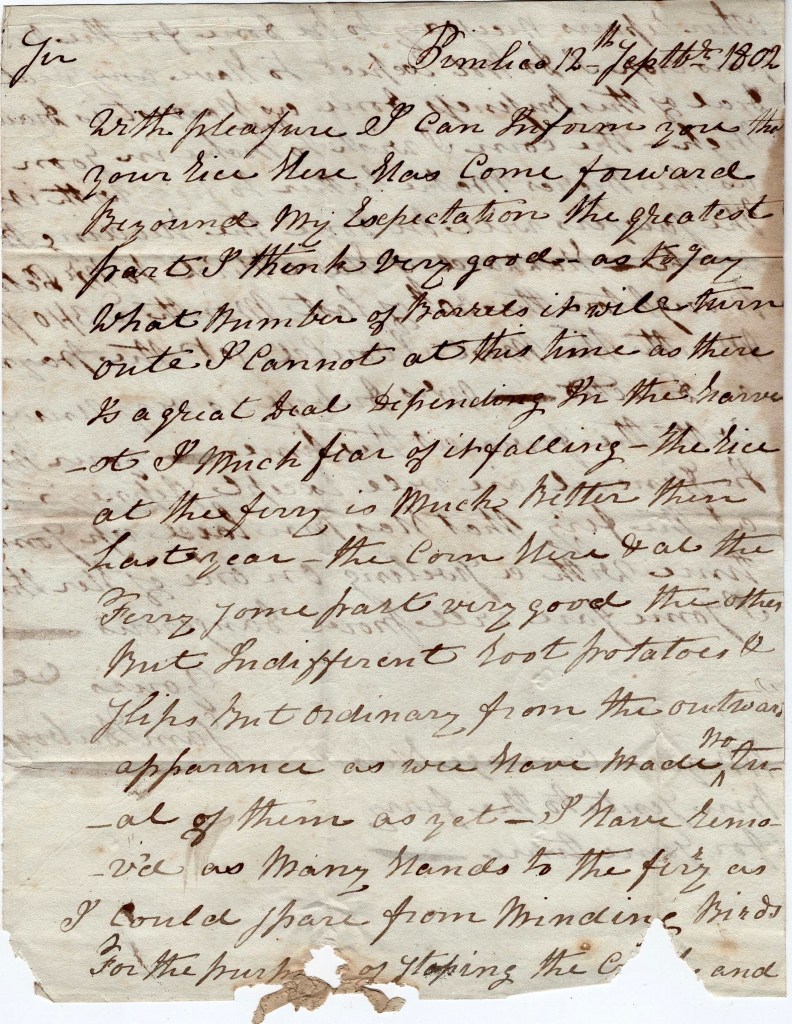 Sir Pimlico 12th Septbr 1802
With pleasure I Can Inform you tha
your Rice Here Has Come forward
Beyound My Expectation the greatest
part I think very good - as to Say
What Number of Barrels it will turn
oute I Cannot at this time as there
Is a great Deal Depending In the Harve
-st I Much fear of it falling - the Rice
at the ferry is Much Better then
Last year - the Corn Here & at the
Ferry Some part very good the other
But Indifferent Root potatoes &
Slips But ordinary from the outward
apparance as wee Have Made No tri-
-al of them as yet - I Have Remo-
-v'd as Many Hands to the ferry as
I Could Spare from Minding Birds
For the of Stoping the and